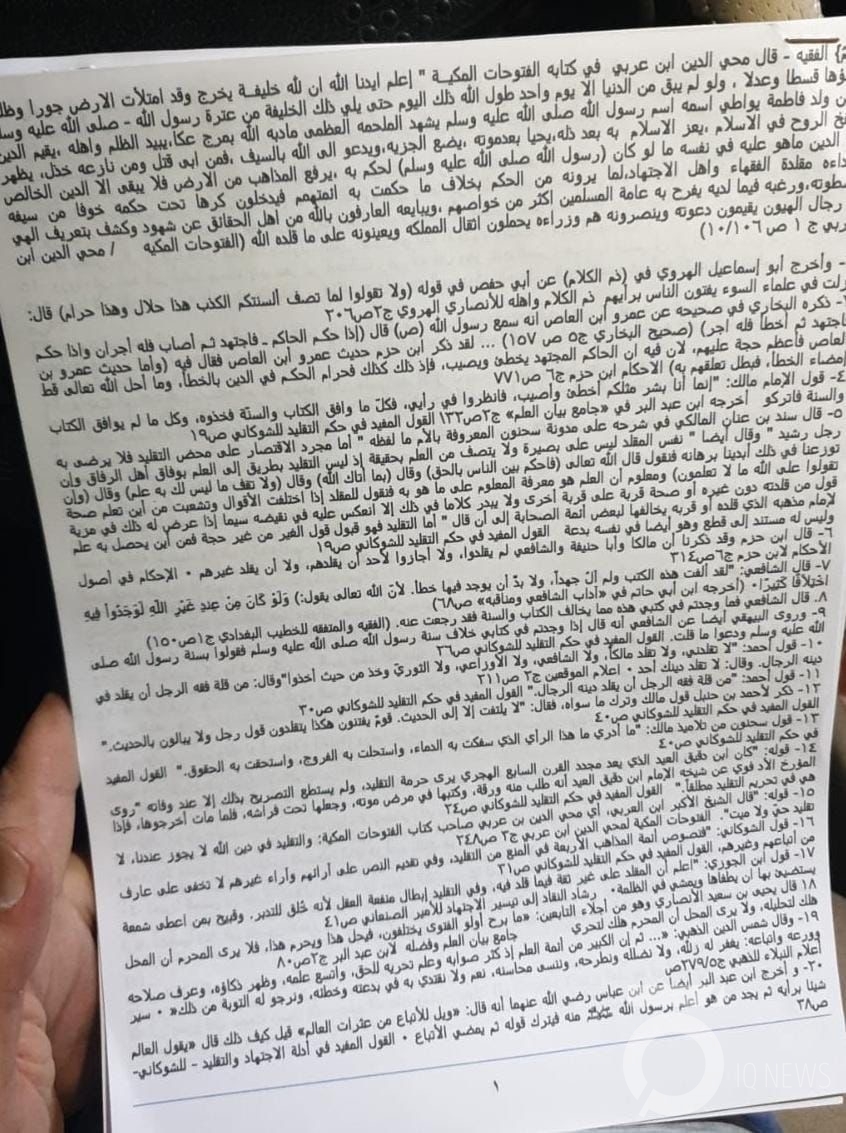 الفقيه - قال محي الدين ابن عربي في كتابه الفتوحات المكية " إعلم ايدنا الله ان لله خليفة يخرج وقد امتلأت الارض جورا
قسطا وعدلا ، ولو لم يبق من الدنيا الا يوم واحد طول الله ذلك اليوم حتى يلي ذلك الخليفة من عترة رسول الله - صلى الله عليه
ولد فاطمة يواطي اسمه اسم رسول الله صلى الله عليه وسلم يشهد الملحمه العظمى مادبه الله بمرج عكا،يبيد الظلم واهله ،يقيم
الروح في الاسلام ،يعز الاسلام به بعد ذله،يحيا بعدموته ،يضع الجزيه،ويدعو الى الله بالسيف ،فمن ابى قتل ومن نازعه خذل، يظهر
الدين ماهو عليه في نفسه ما لو كان (رسول الله صلى الله عليه وسلم) لحكم به ،يرفع المذاهب من الارض فلا يبقى الا الدين الخالص
مقلدة الفقهاء واهل الاجتهاد،لما يرونه من الحكم بخلاف ما حكمت به ائمتهم فيدخلون كرها تحت حكمه خوفا من سيفه
ورغبه فيما لديه يفرح به عامة المسلمين اكثر من خواصهم ،ويبايعه العارفون بالله من اهل الحقائق عن شهود وكشف بتعريف الهي
رجال الهيون يقيمون دعوته وينصرونه هم وزراءه يحملون اثقال المملكه ويعينونه على ما قلده الله (الفتوحات المكيه / محي الدين ابن
ج ١ ص ١٠/١٠٦)
- وأخرج أبو إسماعيل الهروي في (ذم الكلام) عن أبي حفص في قوله (ولا تقولوا لما تصف ألسنتكم الكذب هذا حلال وهذا حرام) قال:
في علماء السوء يفتون الناس برأيهم ذم الكلام واهله للأنصاري الهروي ج٢ص٢٠٦
ذكره البخاري في صحيحه عن عمرو ابن العاص انه سمع رسول الله (ص) قال (إذا حكم الحاكم - فاجتهد ثم أصاب فله أجران واذا حكم
فاجتهد ثم أخطأ فله أجر) (صحيح البخاري ج٥ ص ١٥٧) ... لقد ذكر ابن حزم حديث عمرو ابن العاص فقال فيه (وأما حديث عمرو بن
العاص فأعظم حجة عليهم، لان فيه ان الحاكم المجتهد يخطئ ويصيب، فإذ ذلك كذلك فحرام الحكم في الدين بالخطأ، وما أحل الله تعالى قط
إمضاء الخطأ، فبطل تعلقهم به) الاحكام ابن حزم ج٦ ص ٧٧١
٤- قول الإمام مالك: "إنما أنا بشر مثلكم أخطئ وأصيب، فانظروا في رأيي، فكلّ ما وافق الكتاب والسنّة فخذوه، وكل ما لم يوافق الكتاب
والسنة فاتركو أخرجه ابن عبد البر في «جامع بيان العلم» ج٢ص١٣٢ القول المفيد في حكم التقليد للشوكاني ص١٩
٥- قال سند بن عنان المالكي في شرحه على مدونة سحنون المعروفة بالأم ما لفظه " أما مجرد الاقتصار على محض التقليد فلا يرضى به
رجل رشيد " وقال أيضا " نفس المقلد ليس على بصيرة ولا يتصف من العلم بحقيقة إذ ليس التقليد بطريق إلى العلم بوفاق أهل الرفاق وإن
توزعنا في ذلك أبدينا برهانه فنقول قال الله تعالى (فاحكم بين الناس بالحق) وقال (بما أتاك الله) وقال (ولا تقف ما ليس لك به علم) وقال (وأن
تقولوا على الله ما لا تعلمون) ومعلوم أن العلم هو معرفة المعلوم على ما هو به فنقول للمقلد إذا اختلفت الأقوال وتشعبت من أين تعلم صحة
قول من قلدته دون غيره أو صحة قربة على قربة أخرى ولا يبدر كلاما في ذلك إلا انعكس عليه في نقيضه سيما إذا عرض له ذلك في مزية
لإمام مذهبه الذي قلده أو قربه يخالفها لبعض أئمة الصحابة إلى أن قال " أما التقليد فهو قبول قول الغير من غير حجة فمن أين يحصل به علم
وليس له مستند إلى قطع وهو أيضا في نفسه بدعة القول المفيد في حكم التقليد للشوكاني ص١٩
٦- قال ابن حزم وقد ذكرنا أن مالكا وأبا حنيفة والشافعي لم يقلدوا، ولا أجازوا لأحد أن يقلدهم، ولا أن يقلد غيرهم • الإحكام في أصول
الأحكام لابن حزم ج٦ص٣١٤
٧- قال الشافعي: "لقد ألفت هذه الكتب ولم آلُ جهداً، ولا بدّ أن يوجد فيها خطأ. لأنّ الله تعالى يقول:) وَلَوْ كَانَ مِنْ عِندِ غَيْرِ اللَّهِ لَوَجَدُوا فِيهِ
اخْتِلَافًا كَثِيرًا• (أخرجه ابن أبي حاتم في «آداب الشافعي ومناقبه» ص٦٨)
٨. قال الشافعي فما وجدتم في كتبي هذه مما يخالف الكتاب والسنة فقد رجعت عنه. (الفقيه والمتفقه للخطيب البغدادي ج١ص١٥٠)
٩- وروى البيهقي أيضا عن الشافعي أنه قال إذا وجدتم في كتابي خلاف سنة رسول الله صلى الله عليه وسلم فقولوا بسنة رسول الله صلى
الله عليه وسلم ودعوا ما قلت. القول المفيد في حكم التقليد للشوكاني ص٢٦
١٠- قول أحمد: "لا تقلدني، ولا تقلد مالكاً، ولا الشافعي، ولا الأوزاعي، ولا الثوريّ وخذ من حيث أخذوا"وقال: من قلة فقه الرجل أن يقلد في
دينه الرجال. وقال: لا تقلد دينك أحد • اعلام الموقعين ج٢ ص٢١١
١١- قول أحمد: "من قلة فقه الرجل أن يقلد دينه الرجال." القول المفيد في حكم التقليد للشوكاني ص٣٠
١٢- ذكر لأحمد بن حنبل قول مالك وترك ما سواه، فقال: "لا يلتفت إلا إلى الحديث. قومٌ يفتنون هكذا يتقلدون قول رجل ولا يبالون بالحديث."
القول المفيد في حكم التقليد للشوكاني ص٤٠
١٣- قول سحنون من تلاميذ مالك: "ما أدري ما هذا الرأي الذي سفكت به الدماء، واستحلت به الفروج، واستحقت به الحقوق." القول المفيد
في حكم التقليد للشوكاني ص٤٠
١٤- قوله: "كان ابن دقيق العيد الذي يعد مجدد القرن السابع الهجري يرى حرمة التقليد، ولم يستطع التصريح بذلك إلا عند وفاته "روى
المؤرخ الأدفوي عن شيخه الإمام ابن دقيق العيد أنه طلب منه ورقة، وكتبها في مرض موته، وجعلها تحت فراشه، فلما مات أخرجوها، فإذا
هي في تحريم التقليد مطلقاً." القول المفيد في حكم التقليد للشوكاني ص٢٤
١٥- قوله: "قال الشيخ الأكبر ابن العربي، أي محي الدين بن عربي صاحب كتاب الفتوحات المكية: والتقليد في دين الله لا يجوز عندنا، لا
تقليد حيّ ولا ميت". الفتوحات المكية لمحي الدين ابن عربي ج٢ ص٢٤٨
١٦- قول الشوكاني: "فنصوص أئمة المذاهب الأربعة في المنع من التقليد، وفي تقديم النص على آرائهم وآراء غيرهم لا تخفى على عارف
من أتباعهم وغيرهم، القول المفيد في حكم التقليد للشوكاني ص٢١
١٧- قول ابن الجوزي: "اعلم أن المقلد على غير ثقة فيما قلد فيه، وفي التقليد إبطال منفعة العقل لأنه خُلق للتدبر. وقبيح بمن اعطى شمعة
يستضئ بها ان يطفاها ويمشي في الظلمة• رشاد النقاد إلى تيسير الاجتهاد للأمير الصنعاني ص٤١
١٨ قال يحيى بن سعيد الأنصاري وهو من أجلاء التابعين: «ما برح أولو الفتوى يختلفون، فيحل هذا ويحرم هذا، فلا يرى المحرم أن المحل
هلك لتحليله، ولا يرى المحل أن المحرم هلك لتحري جامع بيان العلم وفضله لابن عبد البر ج٢ص٨٠
١٩- وقال شمس الدين الذهبي: «... ثم إن الكبير من أئمة العلم إذا كثر صوابه وعلم تحريه للحق، واتسع علمه، وظهر ذكاؤه، وعرف صلاحه
وورعه واتباعه: يغفر له زلله، ولا نضلله ونطرحه، وننسى محاسنه، نعم ولا نقتدي به في بدعته وخطئه، ونرجو له التوبة من ذلك» • سير
أعلام النبلاء للذهبي ج٥/٢٧٩ص
٢٠- و أخرج ابن عبد البر أيضا عن ابن عباس رضي الله عنهما أنه قال: «ويل للأتباع من عثرات العالم» قيل كيف ذلك قال «يقول العالم
شيئا برأيه ثم يجد من هو أعلم برسول الله ﷺ منه فيترك قوله ثم يمضي الأتباع • القول المفيد في أدلة الاجتهاد والتقليد - للشوكاني-
ص٣٨
١
IQ NEWS